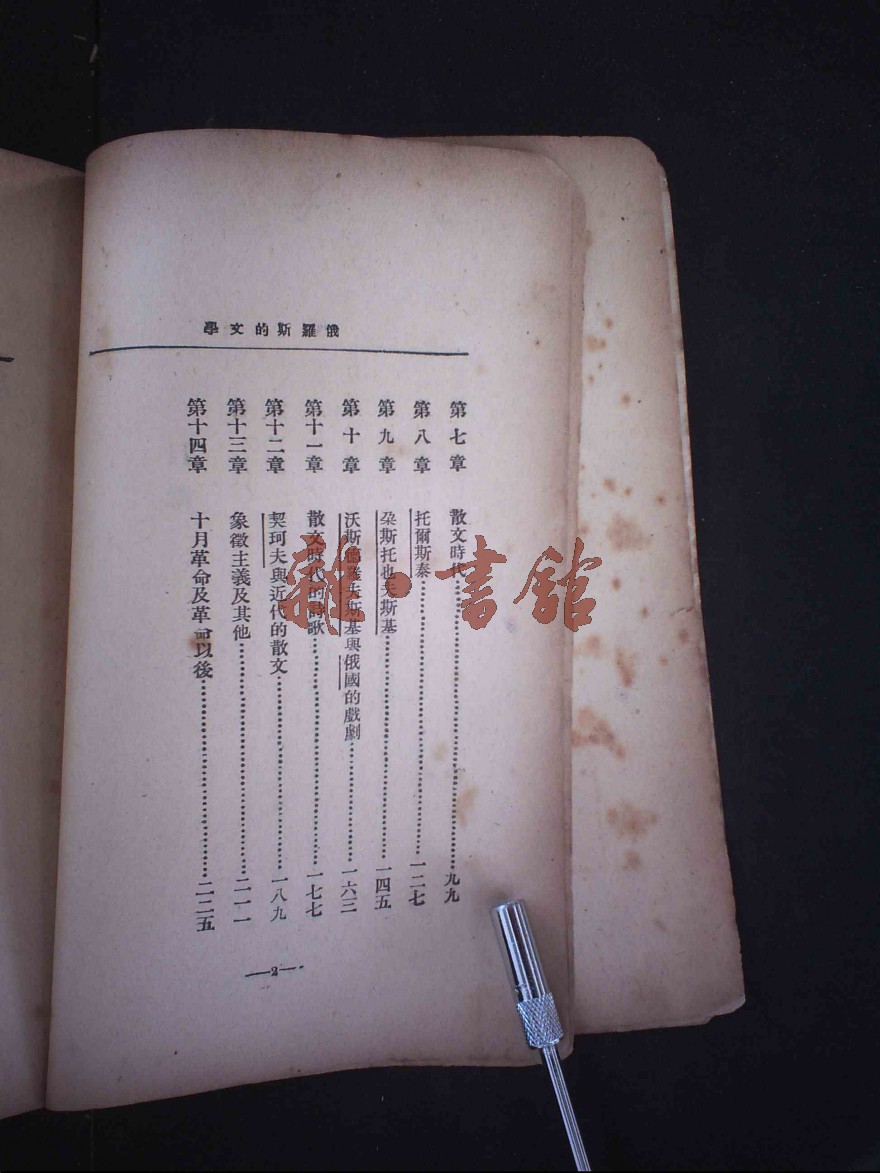 俄羅斯的文學
第七章 散文時代 九九
第八章 托爾斯泰 一二七
第九章 朶斯托也夫斯基 一四五
第十章 沃斯德羅夫斯基與俄國的戲劇 一六三
第十一章 散文時代的詩歌 一七七
第十二章 契珂夫與近代的散文 一八九
第十三章 象徵主義及其他 二一一
第十四章 十月革命及革命以後 二二五
—2—
雜·書館